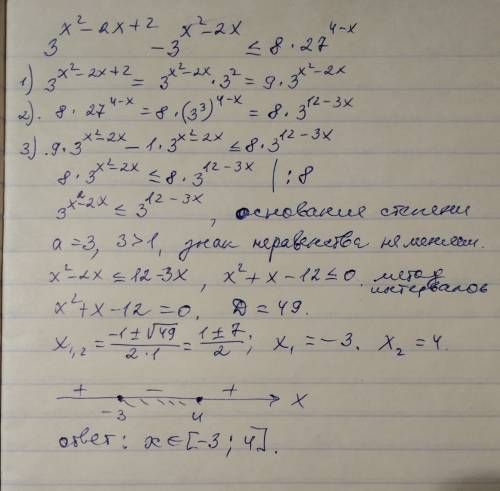 3^{x²-2x+2} - 3^{x²-2x} ≤ 8 · 27^{4-x}
1) 3^{x²-2x+2} = 3^{x²-2x} · 3² = 9 · 3^{x²-2x}
2). 8 · 27^{4-x} = 8 · (3³)^{4-x} = 8 · 3^{12-3x}
3). 9 · 3^{x²-2x} - 1 · 3^{x²-2x} ≤ 8 · 3^{12-3x}
8 · 3^{x²-2x} ≤ 8 · 3^{12-3x} | : 8
3^{x²-2x} ≤ 3^{12-3x}, основание степени
a = 3, 3 > 1, знак неравенства не меняем.
x² - 2x ≤ 12 - 3x, x² + x - 12 ≤ 0. метод интервалов
x² + x - 12 = 0. D = 49.
x_{1,2} = \frac{-1 ± √49}{2·1} = \frac{1 ± 7}{2}; x₁ = -3. x₂ = 4.
+ - +
-3 4 x
ответ: x ∈ [-3; 4].